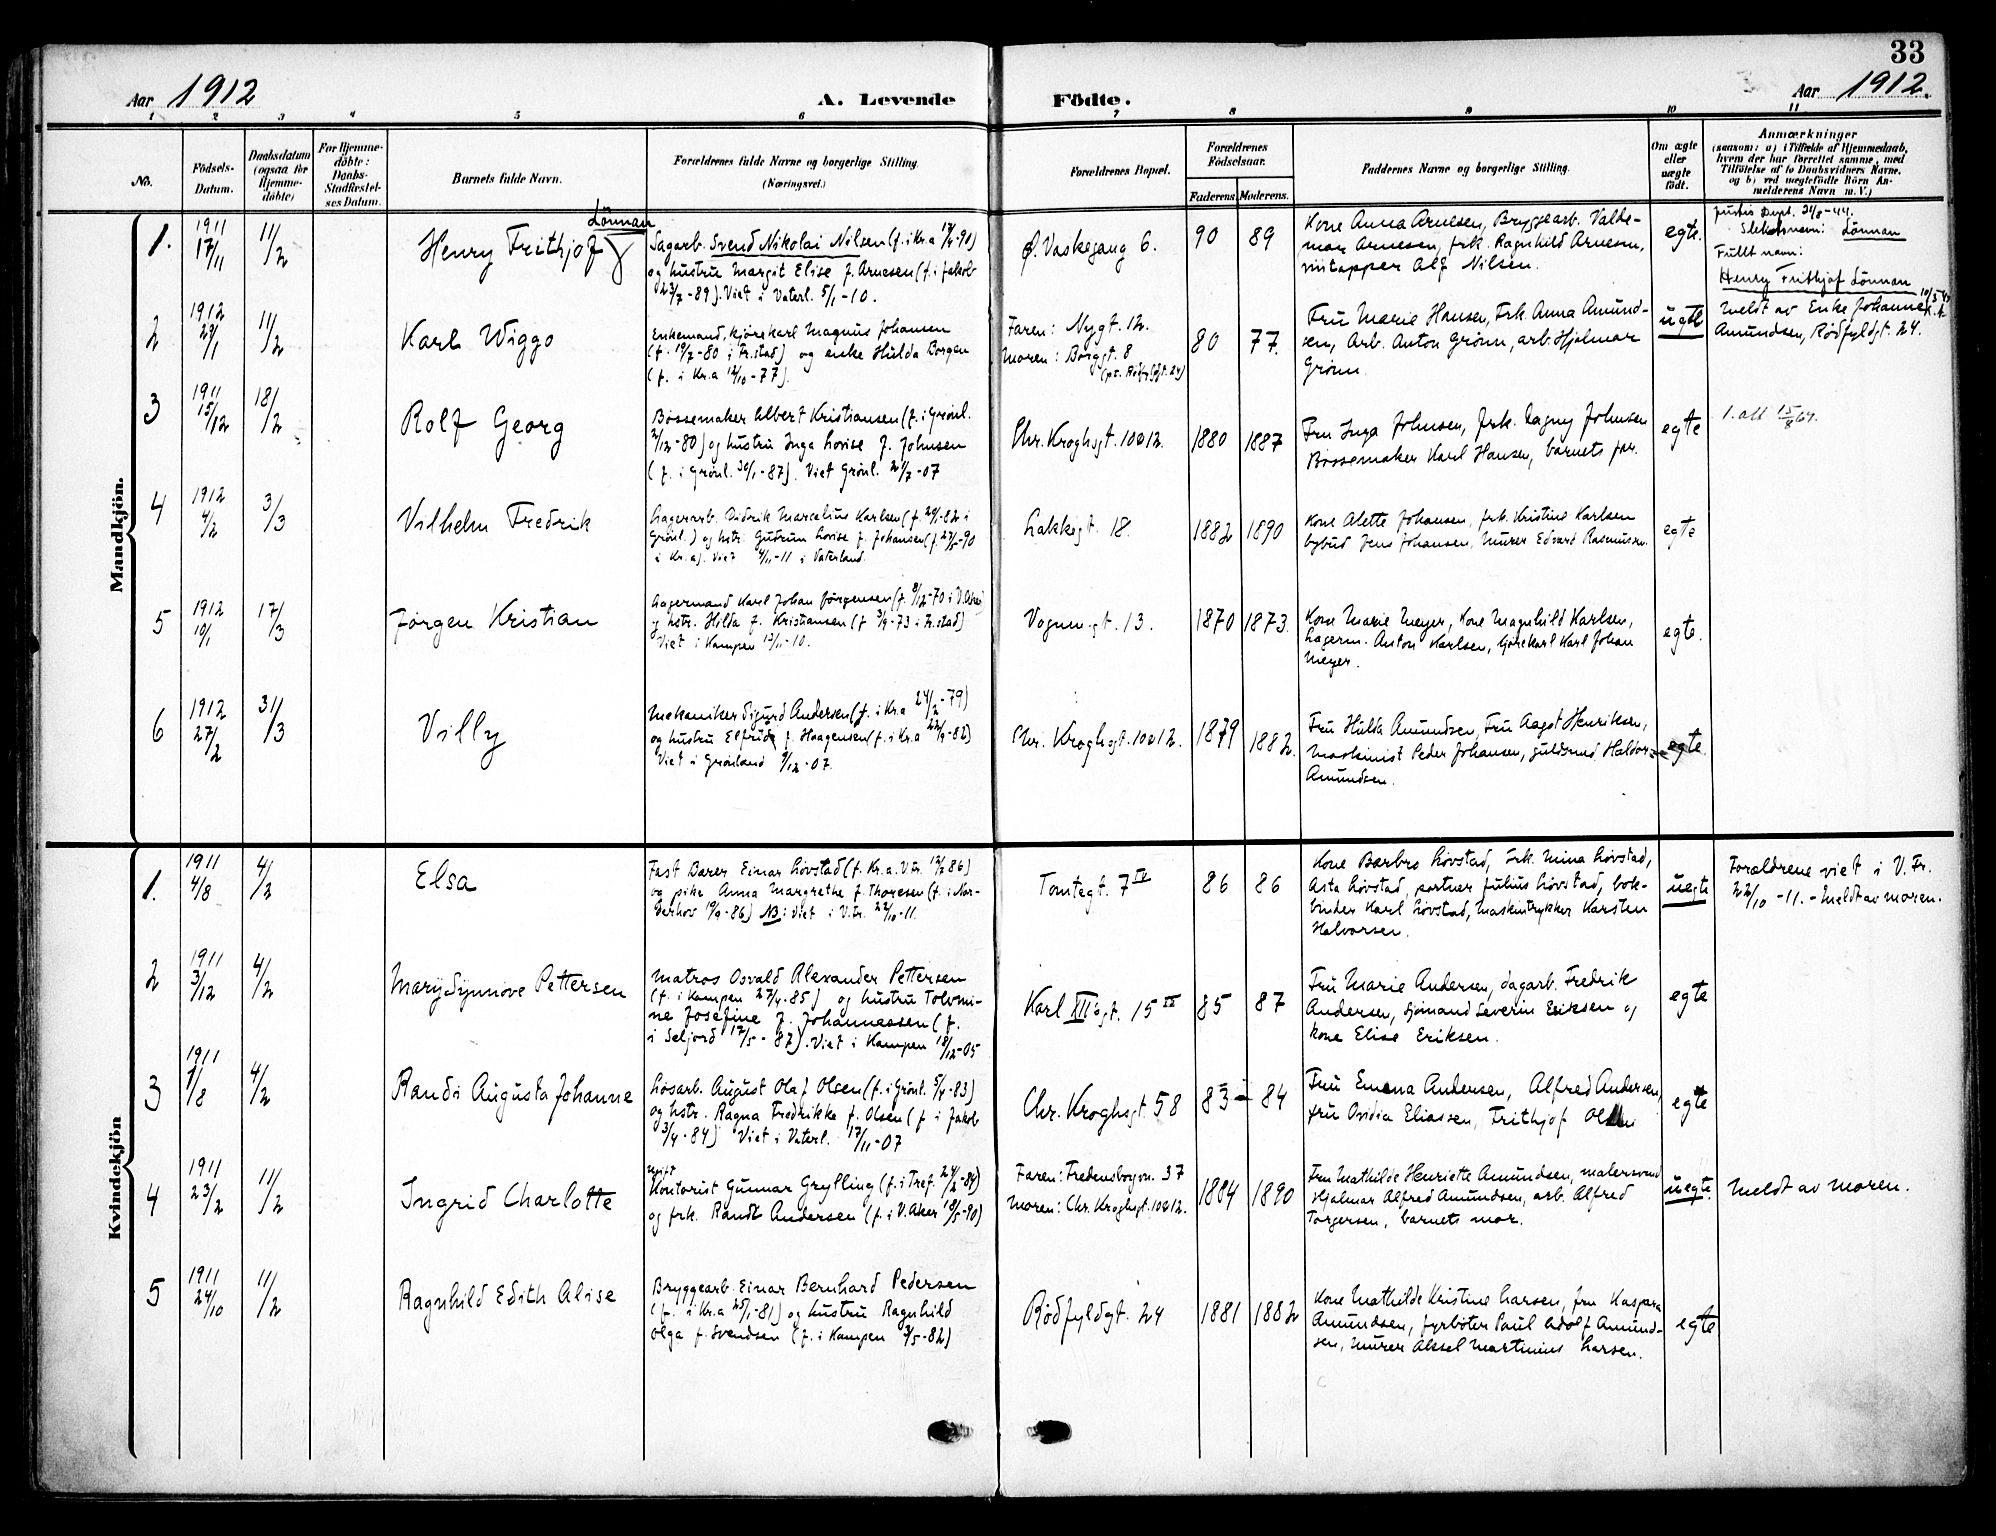 33
Aar 1912
A. Levende
Födte.
Aar 1912.
1 2 3 4 5 6 7 8 9 10 11
No.
Födsels-
Datum.
Daabsdatum
(ogsaa for
Hjemme-
döbte)
For Hjemme-
döbte:
Daabs-
Stadfæstel-
ses Datum.
Barnets fulde Navn.
Forældrenes fulde Navne og borgerlige Stilling.
(Næringsvei.)
Forældrenes Bopæl.
Forældrenes
Födselsaar.
Faderens. Moderens.
Faddernes Navne og borgerlige Stilling.
Om ægte
eller
uægte
födt.
Anmærkninger
(saasom: a) i Tilfælde af Hjemmedaab,
hvem der har forrettet samme, med
Tilföielse af to Daabsvidners Navne.
og b) ved uægtefödte Börn An-
melderens Navn m. V.)
Mandkjön.
1.
1911
17/11
11/2
Lönnan
Henry Frithjof
Sagarb. Svend Nikolai Nilsen (f. i Kr.a 17/4-90)
og hustru Margit Elise f. Arnesen (f. i Jakob
23/7-89). Viet i Vaterl. 5/1-10.
Ø. Vaskegang 6.
90
89
Kone Anna Arnesen, Bryggearb. Valde-
mar Arnesen, frk. Ragnhild Arnesen,
vintapper Alf Nilsen.
egte.
Justis Dept. 21/8-44.
Slektsnavn: Lönnan
Fullt navn:
Henry Frithjof Lönnan
2
1912
29/1
11/2
Karl Wiggo
Enkemand, kjørekarl Magnus Johansen
(f. 19/2-80 i Fr.stad) og enke Hulda Borgen
(f. i Kr.a 12/10-77).
Faren: Nygt. 12.
Moren: Borggt. 8
(pt. Rødfyldgt. 24)
80
77.
Fru Marie Hansen, Frk. Anna Amund-
sen, Arb. Anton Grønn, arb. Hjalmar
Grønn.
uegte
Meldt av Enke Johanne
Amundsen, Rødfyldgt. 24.
3
1911
15/12
18/2
Rolf Georg
Bøssemaker Albert Kristiansen (f. i Grønl.
2/12-80) og hustru Inga Lovise f. Johnsen
(f. i Grønl. 30/1-87). Viet Grønl. 21/7-07
Chr. Kroghsgt. 10012.
1880
1887
Fru Inga Johnsen, frk. Dagny Johnsen
Bøssemaker Karl Hansen, barnets far.
egte
1. att 15/8 64.
4
1912
4/2
3/3
Vilhelm Fredrik
Lagerarb. Didrik Marcelius Karlsen (f. 29/1-82 i
Grønl.) og hstr. Gudrun Lovise f. Johansen (f. 27/5-90
i Kr.a). Viet 4/11-11 i Vaterland.
Lakkegt. 18.
1882
1890
Kone Alette Johansen, frk. Kristine Karlsen
bybud Jens Johansen, Murer Edvard Rasmussen.
egte
5
1912
10/1
17/3
Jørgen Kristian
Lagermand Karl Johan Jørgensen (f. 8/12-70 i V. Aker)
og hstr. Hilda f. Kristiansen (f 3/9-73 i Fr.stad)
Viet i Kampen 13/11-10.
Vognmgt. 13.
1870
1873.
Kone Marie Meyer, Kone Magnhild Karlsen,
Lagerm. Anton Karlsen, kjørekarl Karl Johan
Meyer.
egte.
6
1912
27/2
31/3
Villy
Mekaniker Sigurd Andersen (f. i Kr.a 24/2-79)
og hustru Elfrida f. Haagensen (f. i Kr.a 22/9-82)
Viet i Grønland 9/12-07.
Chr. Kroghsgt. 10012.
1879
1882.
Fru Hulda Amundsen, Fru Aagot Henriksen,
Maskinist Peder Johansen, guldsmed Haldor
Amundsen.
egte.
Kvindekjön
1.
1911
4/8
4/2
Elsa
Fast Bærer Einar Løvstad (f. Kr.a. V.Fr. 12/7 86)
og pike Anna Margrethe f. Thoresen (f. i Nor-
derhov 19/9-86) NB: viet i V.Fr. 22/10-11.
Tomtegt. 7 IV
86
86
Kone Barbro Løvstad, Frk. Mina Løvstad,
Asta Løvstad, portner Julius Løvstad, bok-
binder Karl Løvstad, Maskintrykker Karsten
Halvorsen.
uegte
Forældrene viet i V. Fr.
22/10-11. - Meldt av moren.
2
1911
3/12
4/2
Mary Synnøve Pettersen
Matros Osvald Alexander Pettersen
(f. i Kampen 27/4-85) og hustru Tolvmi-
ne Josefine f. Johannessen (f.
i Seljord 17/5-87). Viet i Kampen 18/12-05
Karl XII's gt. 15 IV
85
87
Fru Marie Andersen, dagarb. Fredrik
Andersen, Sjømand Severin Eriksen og
kone Elise Eriksen.
egte
3
1911
1/8
4/2
Randi Augusta Johanne
Løsarb. August Olaf Olsen (f. i Grønl. 5/4-83)
og hstr. Ragna Fredrikke f. Olsen (f i Jakob
3/4-84) Viet i Vaterl. 17/11-07
Chr. Kroghsgt. 58
83
84
Fru Emma Andersen, Alfred Andersen,
fru Ovidia Eliassen, Frithjof Olsen
egte
4
1911
23/2
11/2
Ingrid Charlotte
ugift
Kontorist Gunnar Grylling (f. i Tref. 24/2-84)
og frk. Randi Andersen (f. i V. Aker 10/5-90)
Faren: Fredensborgvn. 37
Moren: Chr. Kroghsgt. 10012.
1884
1890
Fru Mathilde Henriette Amundsen, malersvend
Hjalmar Alfred Amundsen, arb. Alfred
Torgersen, barnets mor.
uegte.
Meldt av moren.
5
1911
24/10
11/2
Ragnhild Edith Alise
Bryggearb. Einar Bernhard Pedersen
(f. i Kr.a 25/1-81) og hustru Ragnhild
Olga f. Svendsen (f. i Kampen 3/5-82)
Rødfyldgt. 24
1881
1882
Kone Mathilde Kristine Larsen, fru Kaspara
Amundsen, fyrbøter Paul Adolf Amund-
sen, Murer Aksel Martinius Larsen.
egte